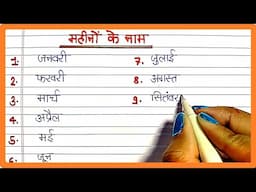 महीनों के नाम
1. जनवरी
2. फरवरी
3. मार्च
4. अप्रैल
5. मई
6. जून
7. जुलाई
8. अगस्त
9. सितंबर